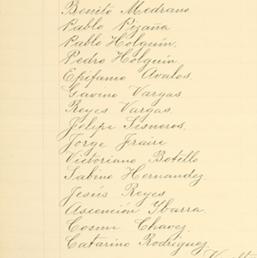 Benito Medrano
Pablo Pizaña
Pablo Holguin.
Pedro Holguin
Epefanio Avalos.
Gavino Vargas
Reyes Vargas.
Felipe Sisneros.
Jorge Fraire
Victoriano Botello
Sabino Hernandez
Jesús Reyes
Ascención Ybarra.
Cosme Chavez.
Catarino Rodriguez